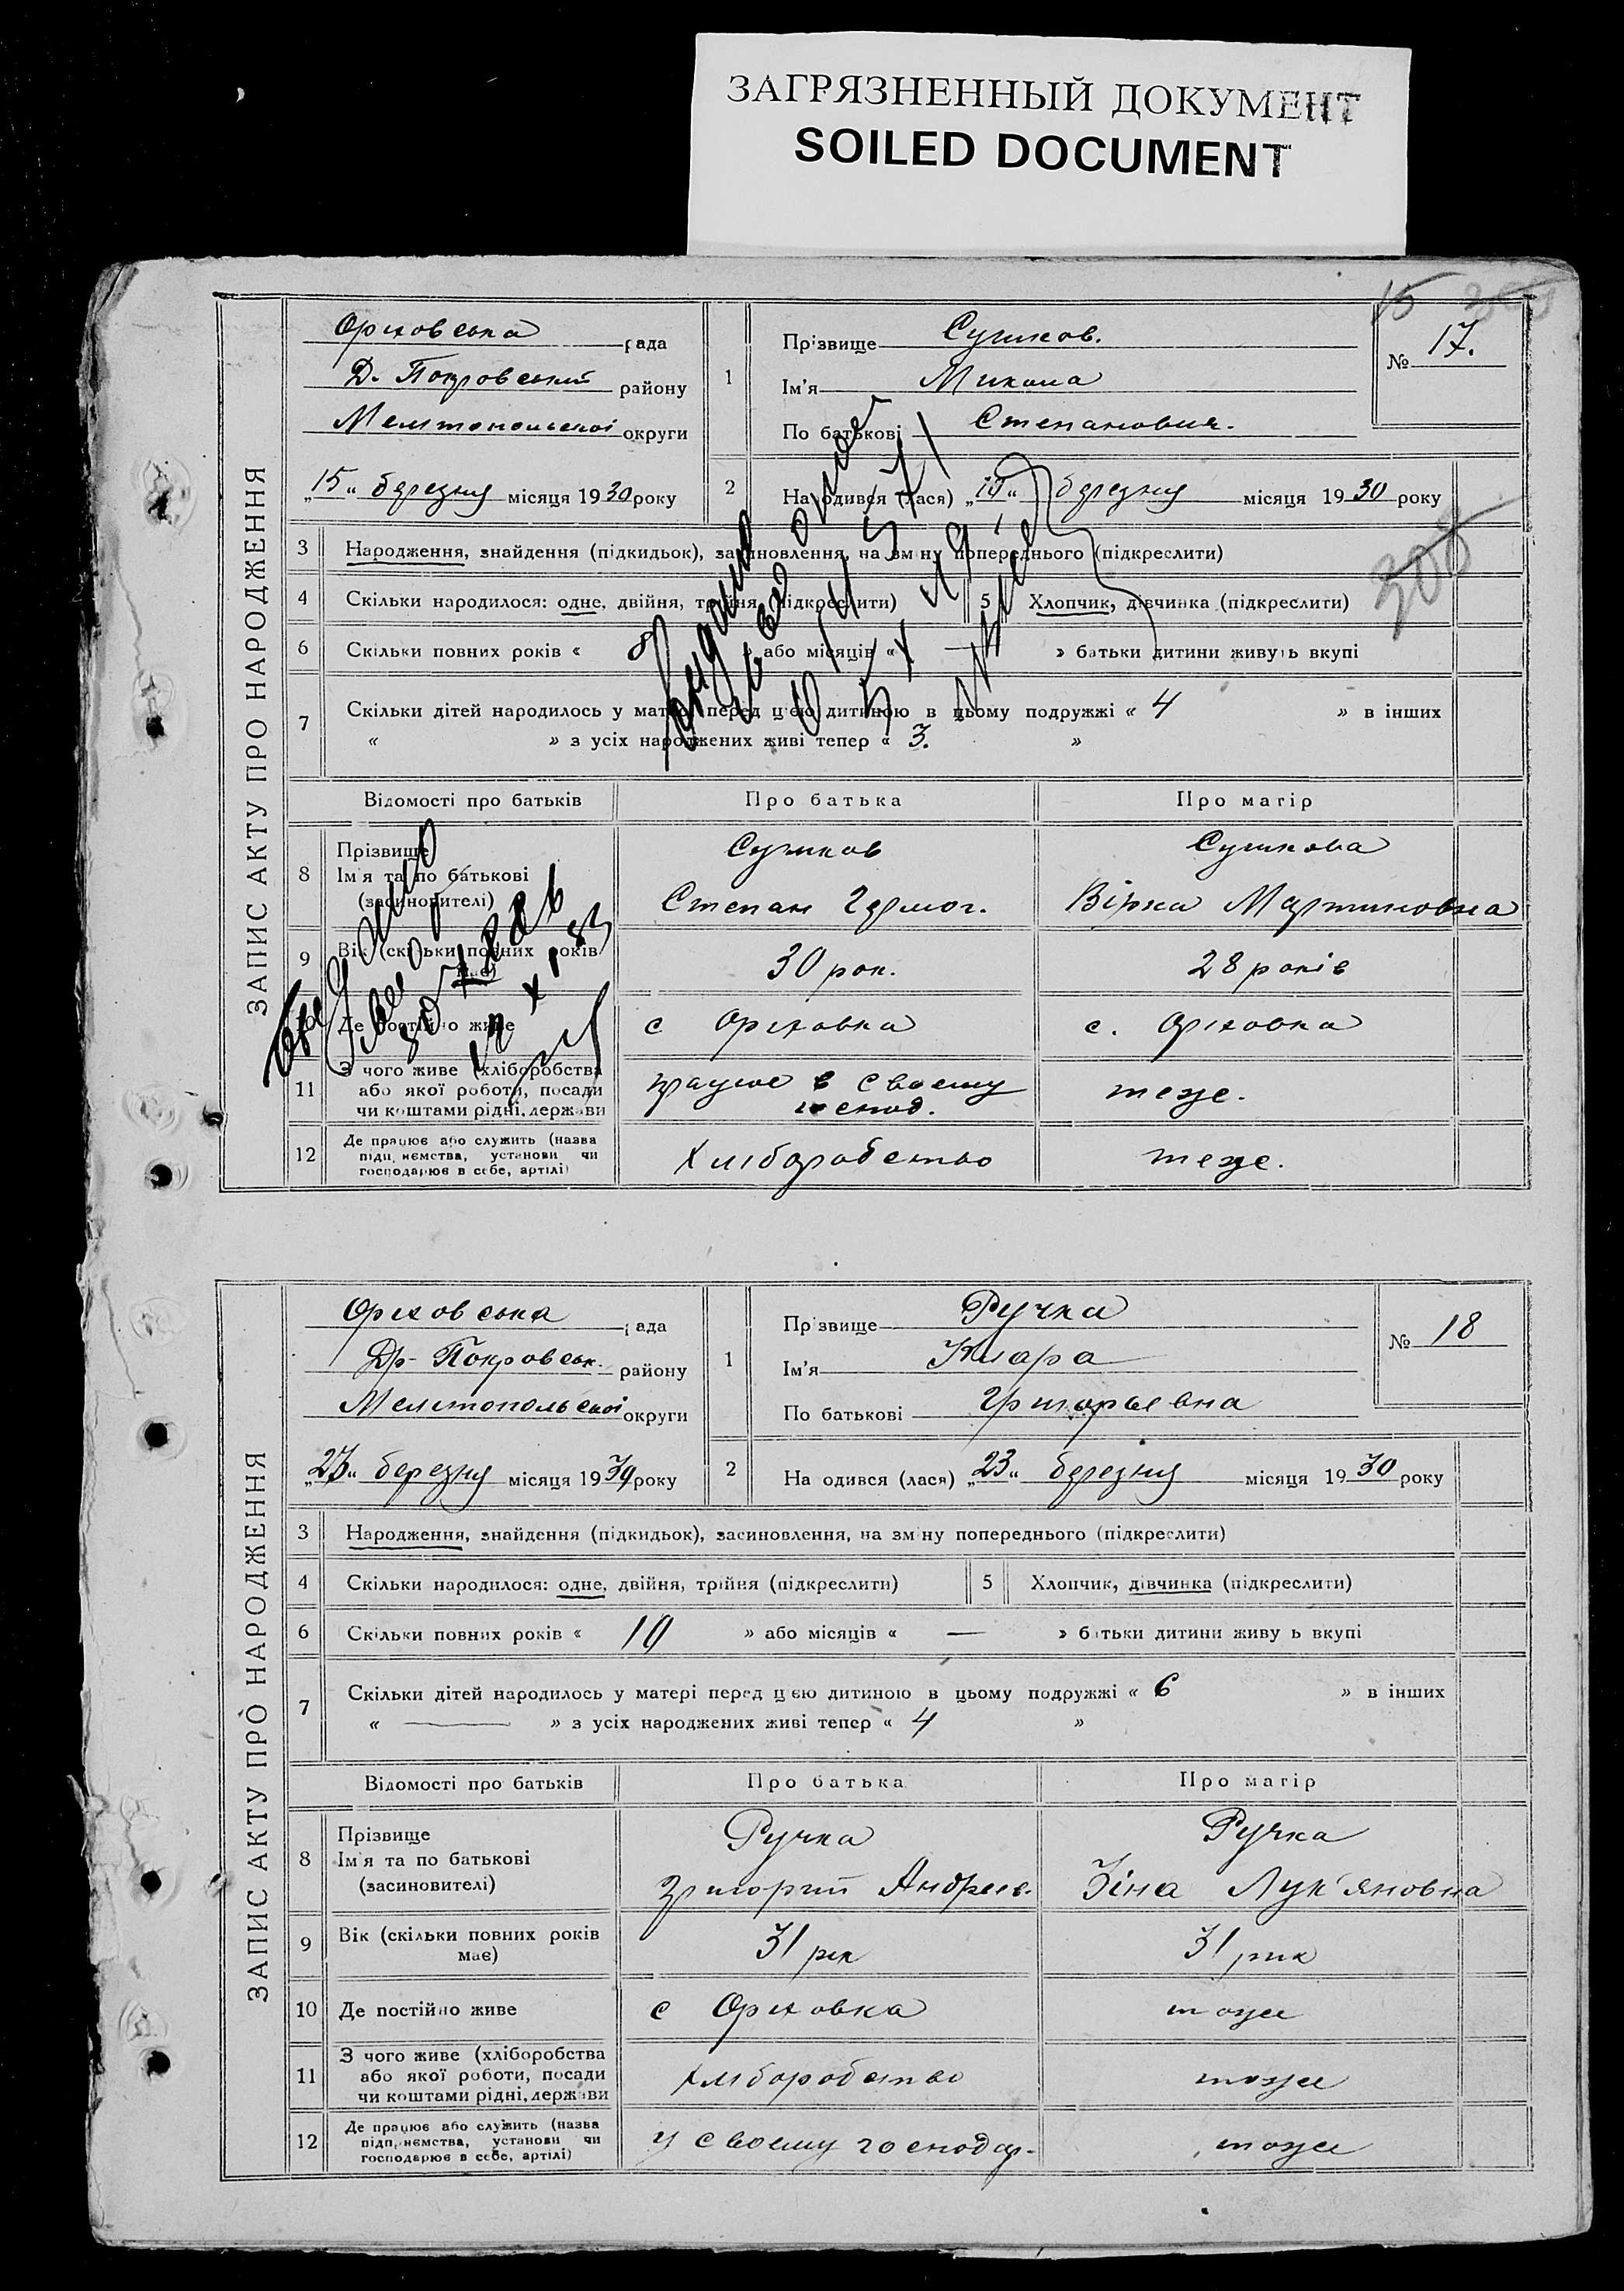 ЗАГРЯЗНЕННЫЙ ДОКУМЕНТ
SOILED DOCUMENT
ЗАПИС АКТУ ПРО НАРОДЖЕННЯ
Оріховська рада
Д. Покровський району
Мелітопольської округи
„15“ березня місяця 1930 року
1 Прізвище Сушков.
Ім'я Микола
По батькові Степанович.
№ 17.
15
2 Народився (лася) березня місяця 1930 року
3 Народження, знайдення (підкидьок), засиновлення, на зміну попереднього (підкреслити)
300
4 Скільки народилося: одне, двійня, трійня (підкреслити) 5 Хлопчик, дівчинка (підкреслити)
6 Скільки повних років « 8 » або місяців « — » батьки дитини живуть вкупі
7 Скільки дітей народилось у матері перед цією дитиною в цьому подружжі « 4 » в інших
« » з усіх народжених живі тепер « 3. »
Відомості про батьків Про батька Про матір
8 Прізвище Сушков Сушкова
Ім'я та по батькові
(засиновителі) Степан Мартиновна
9 Вік (скільки повних років 30 рок. 28 років
має)
Де постійно живе с Оріховка с. Оріховка
11 З чого живе (хліборобства працює в своему
або якої роботи, посади господ. теже.
чи коштами рідні, держави
12 Де працює або служить (назва
підприємства, установи чи Хліборобство теже.
господарює в себе, артілі)
ЗАПИС АКТУ ПРО НАРОДЖЕННЯ
Оріховська рада
Др-Покровськ. району
Мелітопольської округи
березня місяця 19 року
1 Прізвище Ручка
Ім'я Клара
По батькові Григорьевна
№ 18
2 Народився (лася) „23“ березня місяця 1930 року
3 Народження, знайдення (підкидьок), засиновлення, на зміну попереднього (підкреслити)
4 Скільки народилося: одне, двійня, трійня (підкреслити) 5 Хлопчик, дівчинка (підкреслити)
6 Скільки повних років « 10 » або місяців « — » батьки дитини живуть вкупі
7 Скільки дітей народилось у матері перед цією дитиною в цьому подружжі « 6 » в інших
« — » з усіх народжених живі тепер « 4 »
Відомості про батьків Про батька Про матір
8 Прізвище Ручка Ручка
Ім'я та по батькові
(засиновителі) Григорий Андреев. Зіна Лук'яновна
9 Вік (скільки повних років 31 рік 31 рик
має)
10 Де постійно живе с Оріховка тоже
11 З чого живе (хліборобства
або якої роботи, посади хліборобство тоже
чи коштами рідні, держави
12 Де працює або служить (назва
підприємства, установи чи у своему господар. тоже
господарює в себе, артілі)